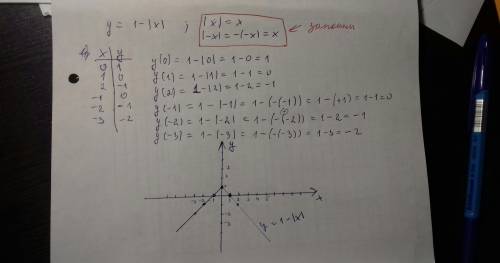 y = 1-|x| ;
|x| = x
|-x| = -(-x) = x
запомни
x y
0 1
1 0
2 -1
-1 0
-2 -1
-3 -2
y(0) = 1-|0| = 1-0 = 1
y(1) = 1-|1| = 1-1 = 0
y(2) = 1-|2| = 1-2 = -1
y(-1) = 1-|-1| = 1-(-(-1)) = 1-(+1) = 1-1=0
y(-2) = 1-|-2| = 1-(-(-2)) = 1-2 = -1
y(-3) = 1-|-3| = 1-(-(-3)) = 1-3 = -2
y
x
y = 1-|x|